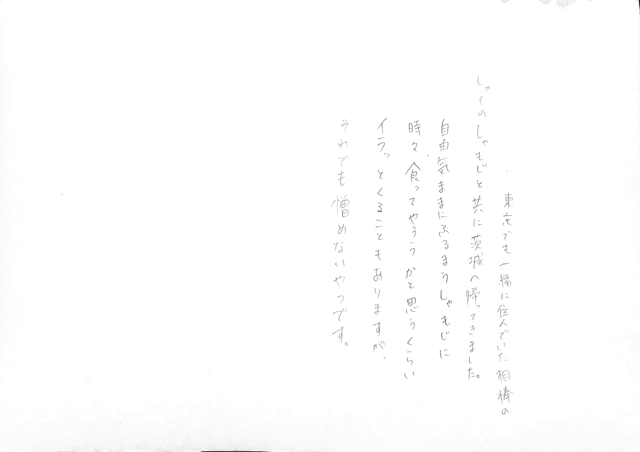 東京でも一緒に住んでいた相棒の
しゃものしゃもじと共に茨城へ帰ってきました。
自由気ままにふるまうしゃもじに
時々、食ってやろうかと思うくらい
イラッとくることもありますが、
それでも憎めないやつです。